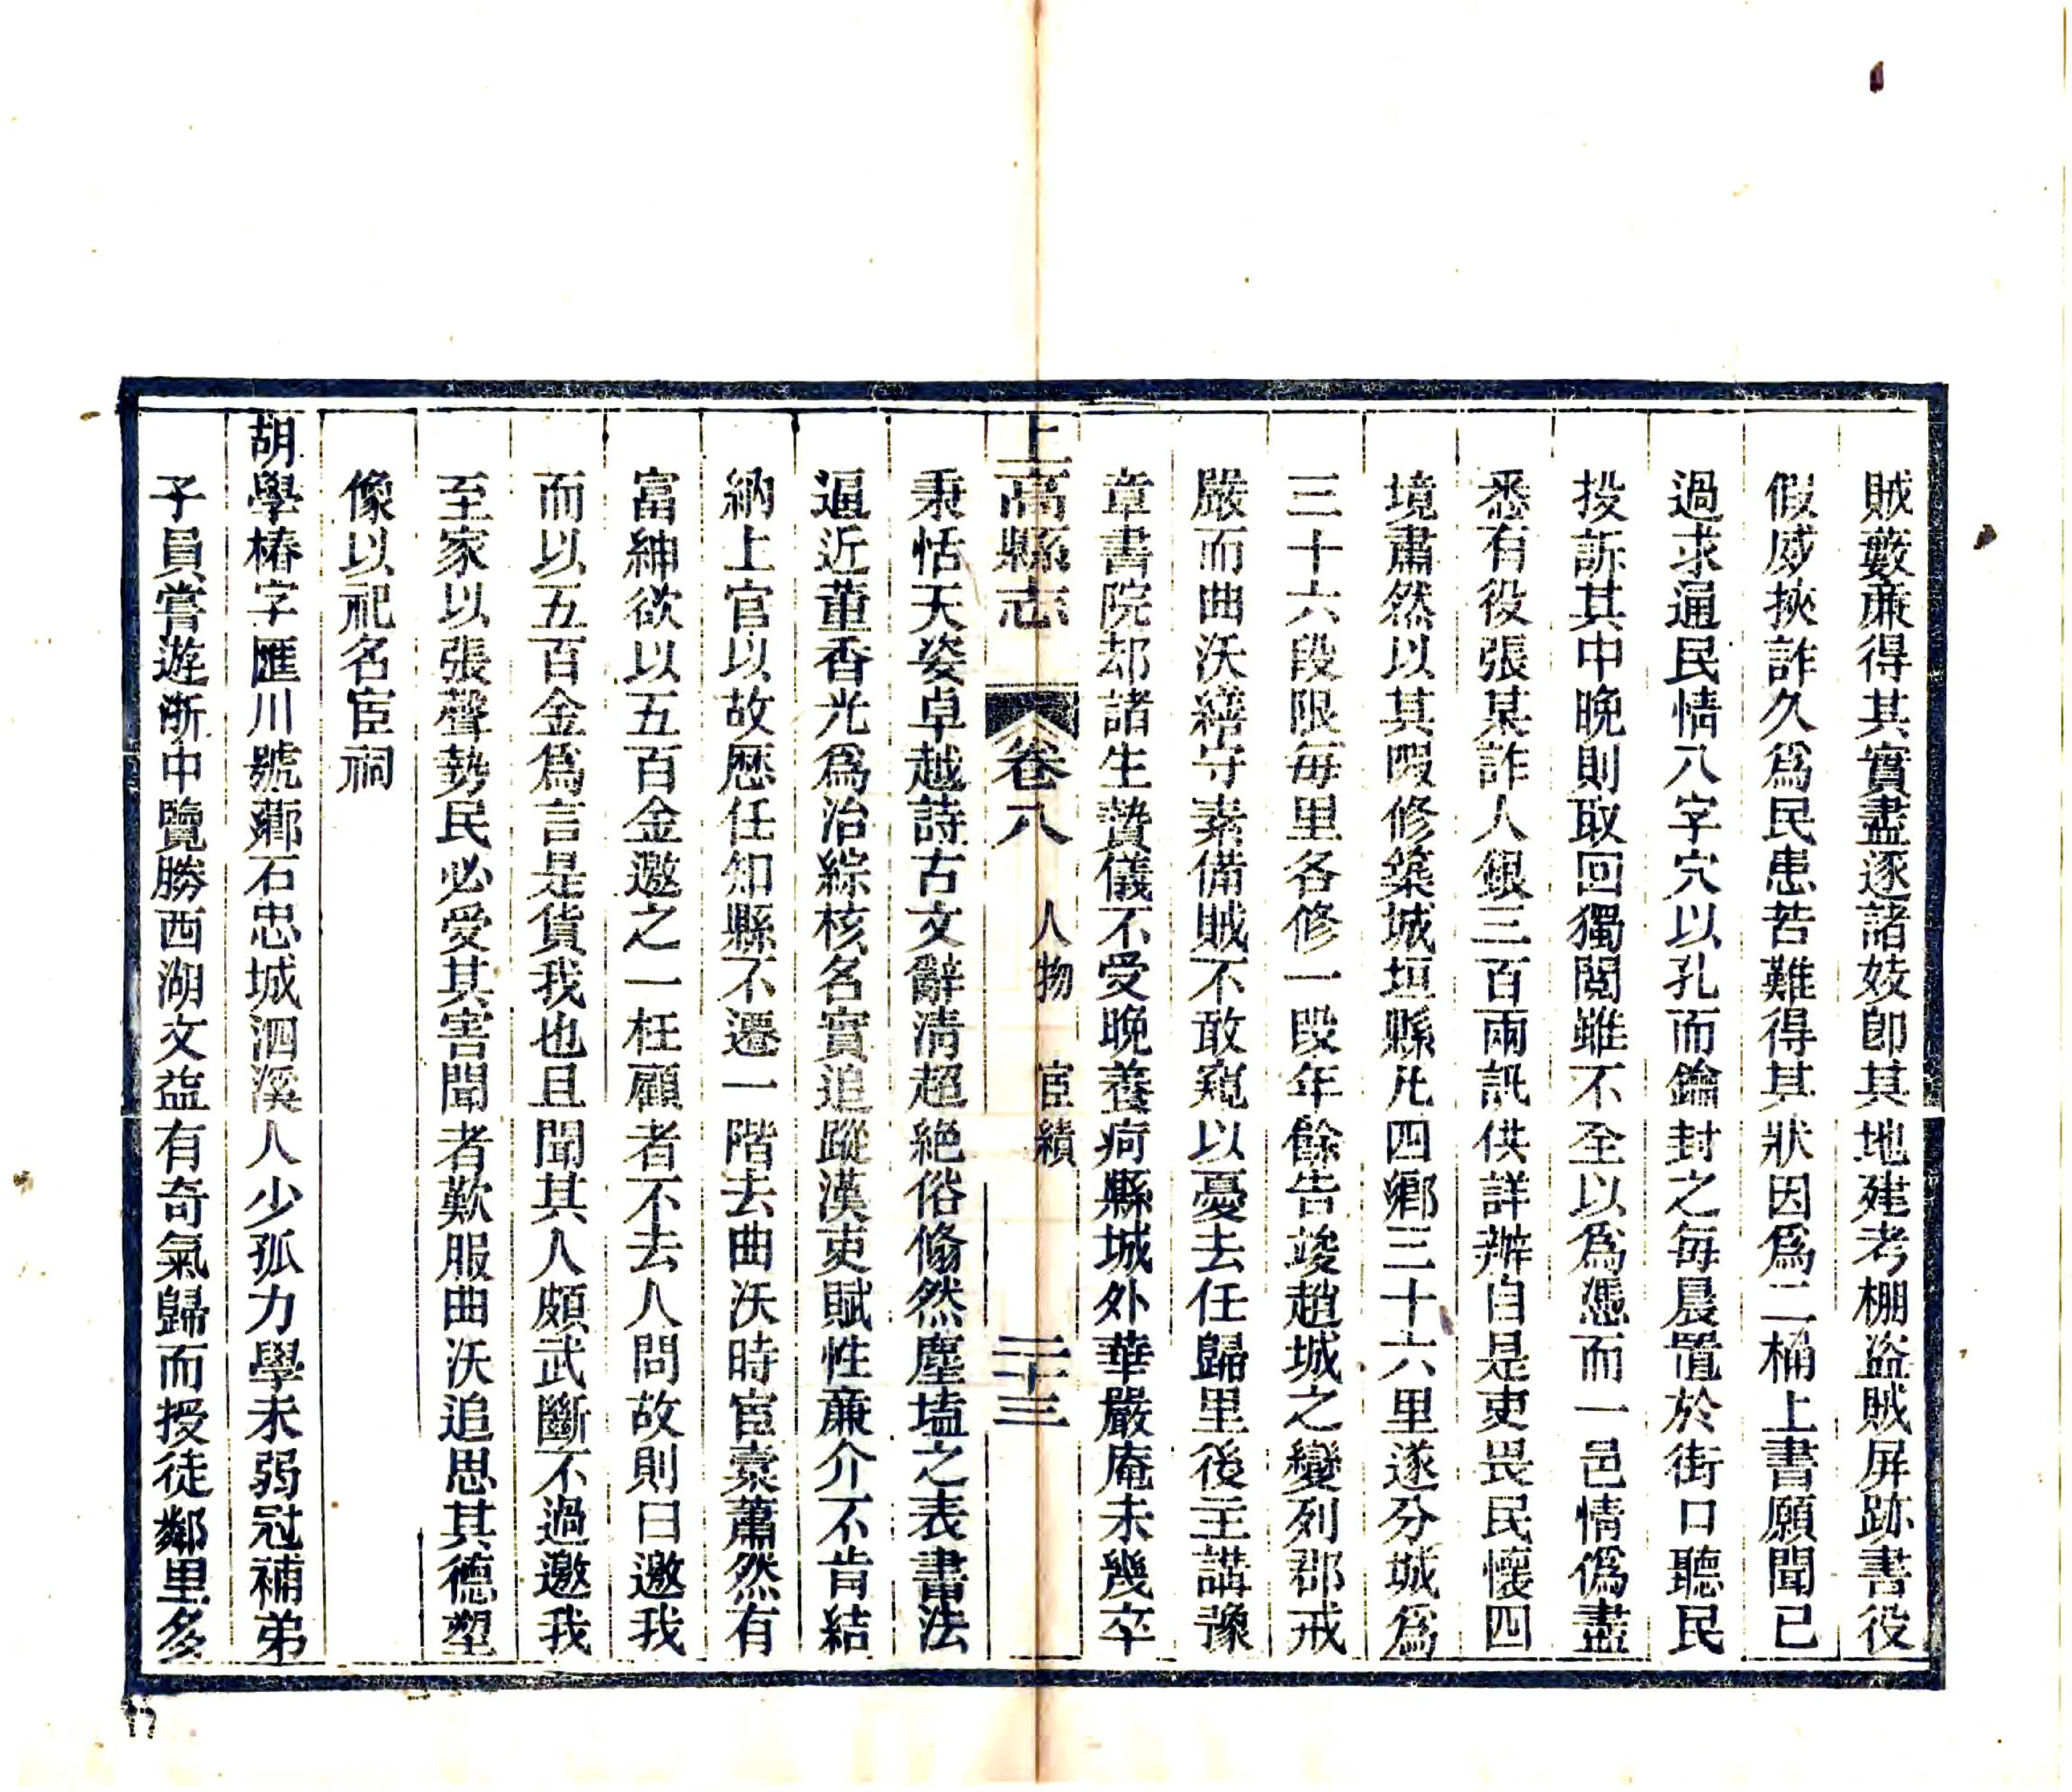 賊藪廉得其實盡逐諸妓卽其地建考棚盜賊屏跡書役
假威挾詐久爲民患苦難得其狀因爲二桶上書願聞已
過求通民情八字穴以孔而鑰封之每晨置於街口聽民
投訴其中晚則取回獨閱雖不全以爲憑而一邑情僞盡
悉有役張某詐人銀三百兩訊供詳辦自是吏畏民懷四
境肅然以其暇修築城垣縣凡四鄉三十六里遂分城爲
三十六段限每里各修一段年餘告竣趙城之變列郡戒
嚴而曲沃繕守素備賊不敢窺以憂去任歸里後主講豫
章書院却諸生贄儀不受晚養疴縣城外華嚴庵未幾卒
上高縣志 卷八 人物 宦績 二十三
秉恬天姿卓越詩古文辭清超絕俗翛然塵壒之表書法
逼近董香光爲治綜核名實追蹤漢吏賦性廉介不肯結
納上官以故歷任知縣不遷一階去曲沃時宦橐蕭然有
富紳欲以五百金邀之一枉顧者不去人問故則曰邀我
而以五百金爲言是貨我也且聞其人頗武斷不過邀我
至家以張聲勢民必受其害聞者歎服曲沃追思其德塑
像以祀名宦祠
胡學椿字匯川號薌石忠城泗溪人少孤力學未弱冠補弟
子員嘗遊浙中覽勝西湖文益有奇氣歸而授徒鄰里多